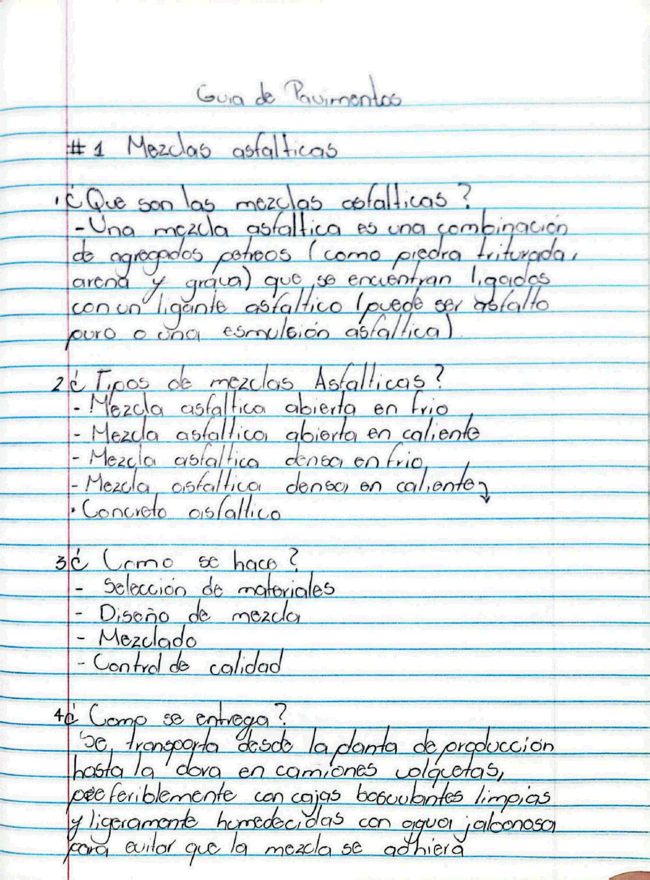 Guia de Pavimentos
#1 Mezclas asfalticas
1¿Que son las mezclas asfalticas?
-Una mezcla asfaltica es una combinación
de agregados petreos (como piedra triturada,
arena y grava) que se encuentran ligados
con un ligante asfaltico (puede ser asfalto
puro o una esmulsión asfaltica)
2¿Tipos de mezclas Asfalticas?
- Mezcla asfaltica abierta en frio
- Mezcla asfaltica abierta en caliente
- Mezcla asfaltica densa en frio
- Mezcla asfaltica densa en caliente
· Concreto asfaltico
3¿ Como se hace?
- Selección de materiales
- Diseño de mezcla
- Mezclado
- Control de calidad
4¿ Como se entrega?
Se transporta desde la planta de producción
hasta la obra en camiones volquetas,
preferiblemente con cajas basculantes limpias
y ligeramente humedecidas con agua jabonosa
para evitar que la mezcla se adhiera